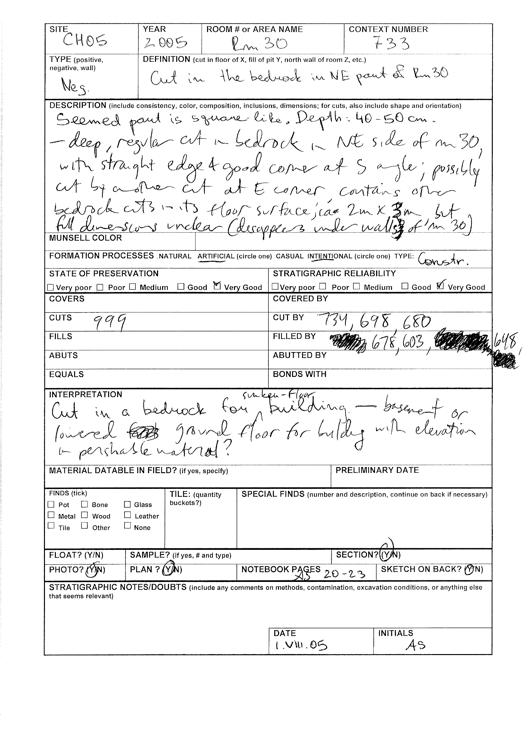 SITE CH05 YEAR 2005 ROOM # or AREA NAME Rm 30 CONTEXT NUMBER 733
TYPE (positive, negative, wall) Neg. DEFINITION (cut in floor of X, fill of pit Y, north wall of room Z, etc.) Cut in the bedrock in NE part of Rm 30
DESCRIPTION (include consistency, color, composition, inclusions, dimensions; for cuts, also include shape and orientation)
Seemed part is square like. Depth: 40-50 cm.
– deep, regular cut in bedrock in NE side of rm 30,
with straight edge & good corner at S angle; possibly
cut by another cut at E corner, contains other
bedrock cuts in its floor surface; ca 2m x 3m but
full dimensions unclear (disappears under walls of rm 30)
MUNSELL COLOR
FORMATION PROCESSES NATURAL ARTIFICIAL (circle one) CASUAL INTENTIONAL (circle one) TYPE: Constr.
STATE OF PRESERVATION STRATIGRAPHIC RELIABILITY
Very poor Poor Medium Good Very Good Very poor Poor Medium Good Very Good
COVERS COVERED BY
CUTS 999 CUT BY 734, 698, 680
FILLS FILLED BY 678, 603, 648,
ABUTS ABUTTED BY
EQUALS BONDS WITH
INTERPRETATION sunken-floor
Cut in a bedrock for building – basement or
lowered ground floor for building with elevation
in perishable material?
MATERIAL DATABLE IN FIELD? (if yes, specify) PRELIMINARY DATE
FINDS (tick) TILE: (quantity buckets?) SPECIAL FINDS (number and description, continue on back if necessary)
Pot Bone Glass
Metal Wood Leather
Tile Other None
FLOAT? (Y/N) SAMPLE? (if yes, # and type) SECTION? (Y/N)
PHOTO? (Y/N) PLAN? (Y/N) NOTEBOOK PAGES AS 20-23 SKETCH ON BACK? (Y/N)
STRATIGRAPHIC NOTES/DOUBTS (include any comments on methods, contamination, excavation conditions, or anything else
that seems relevant)
DATE 1.VIII.05 INITIALS AS